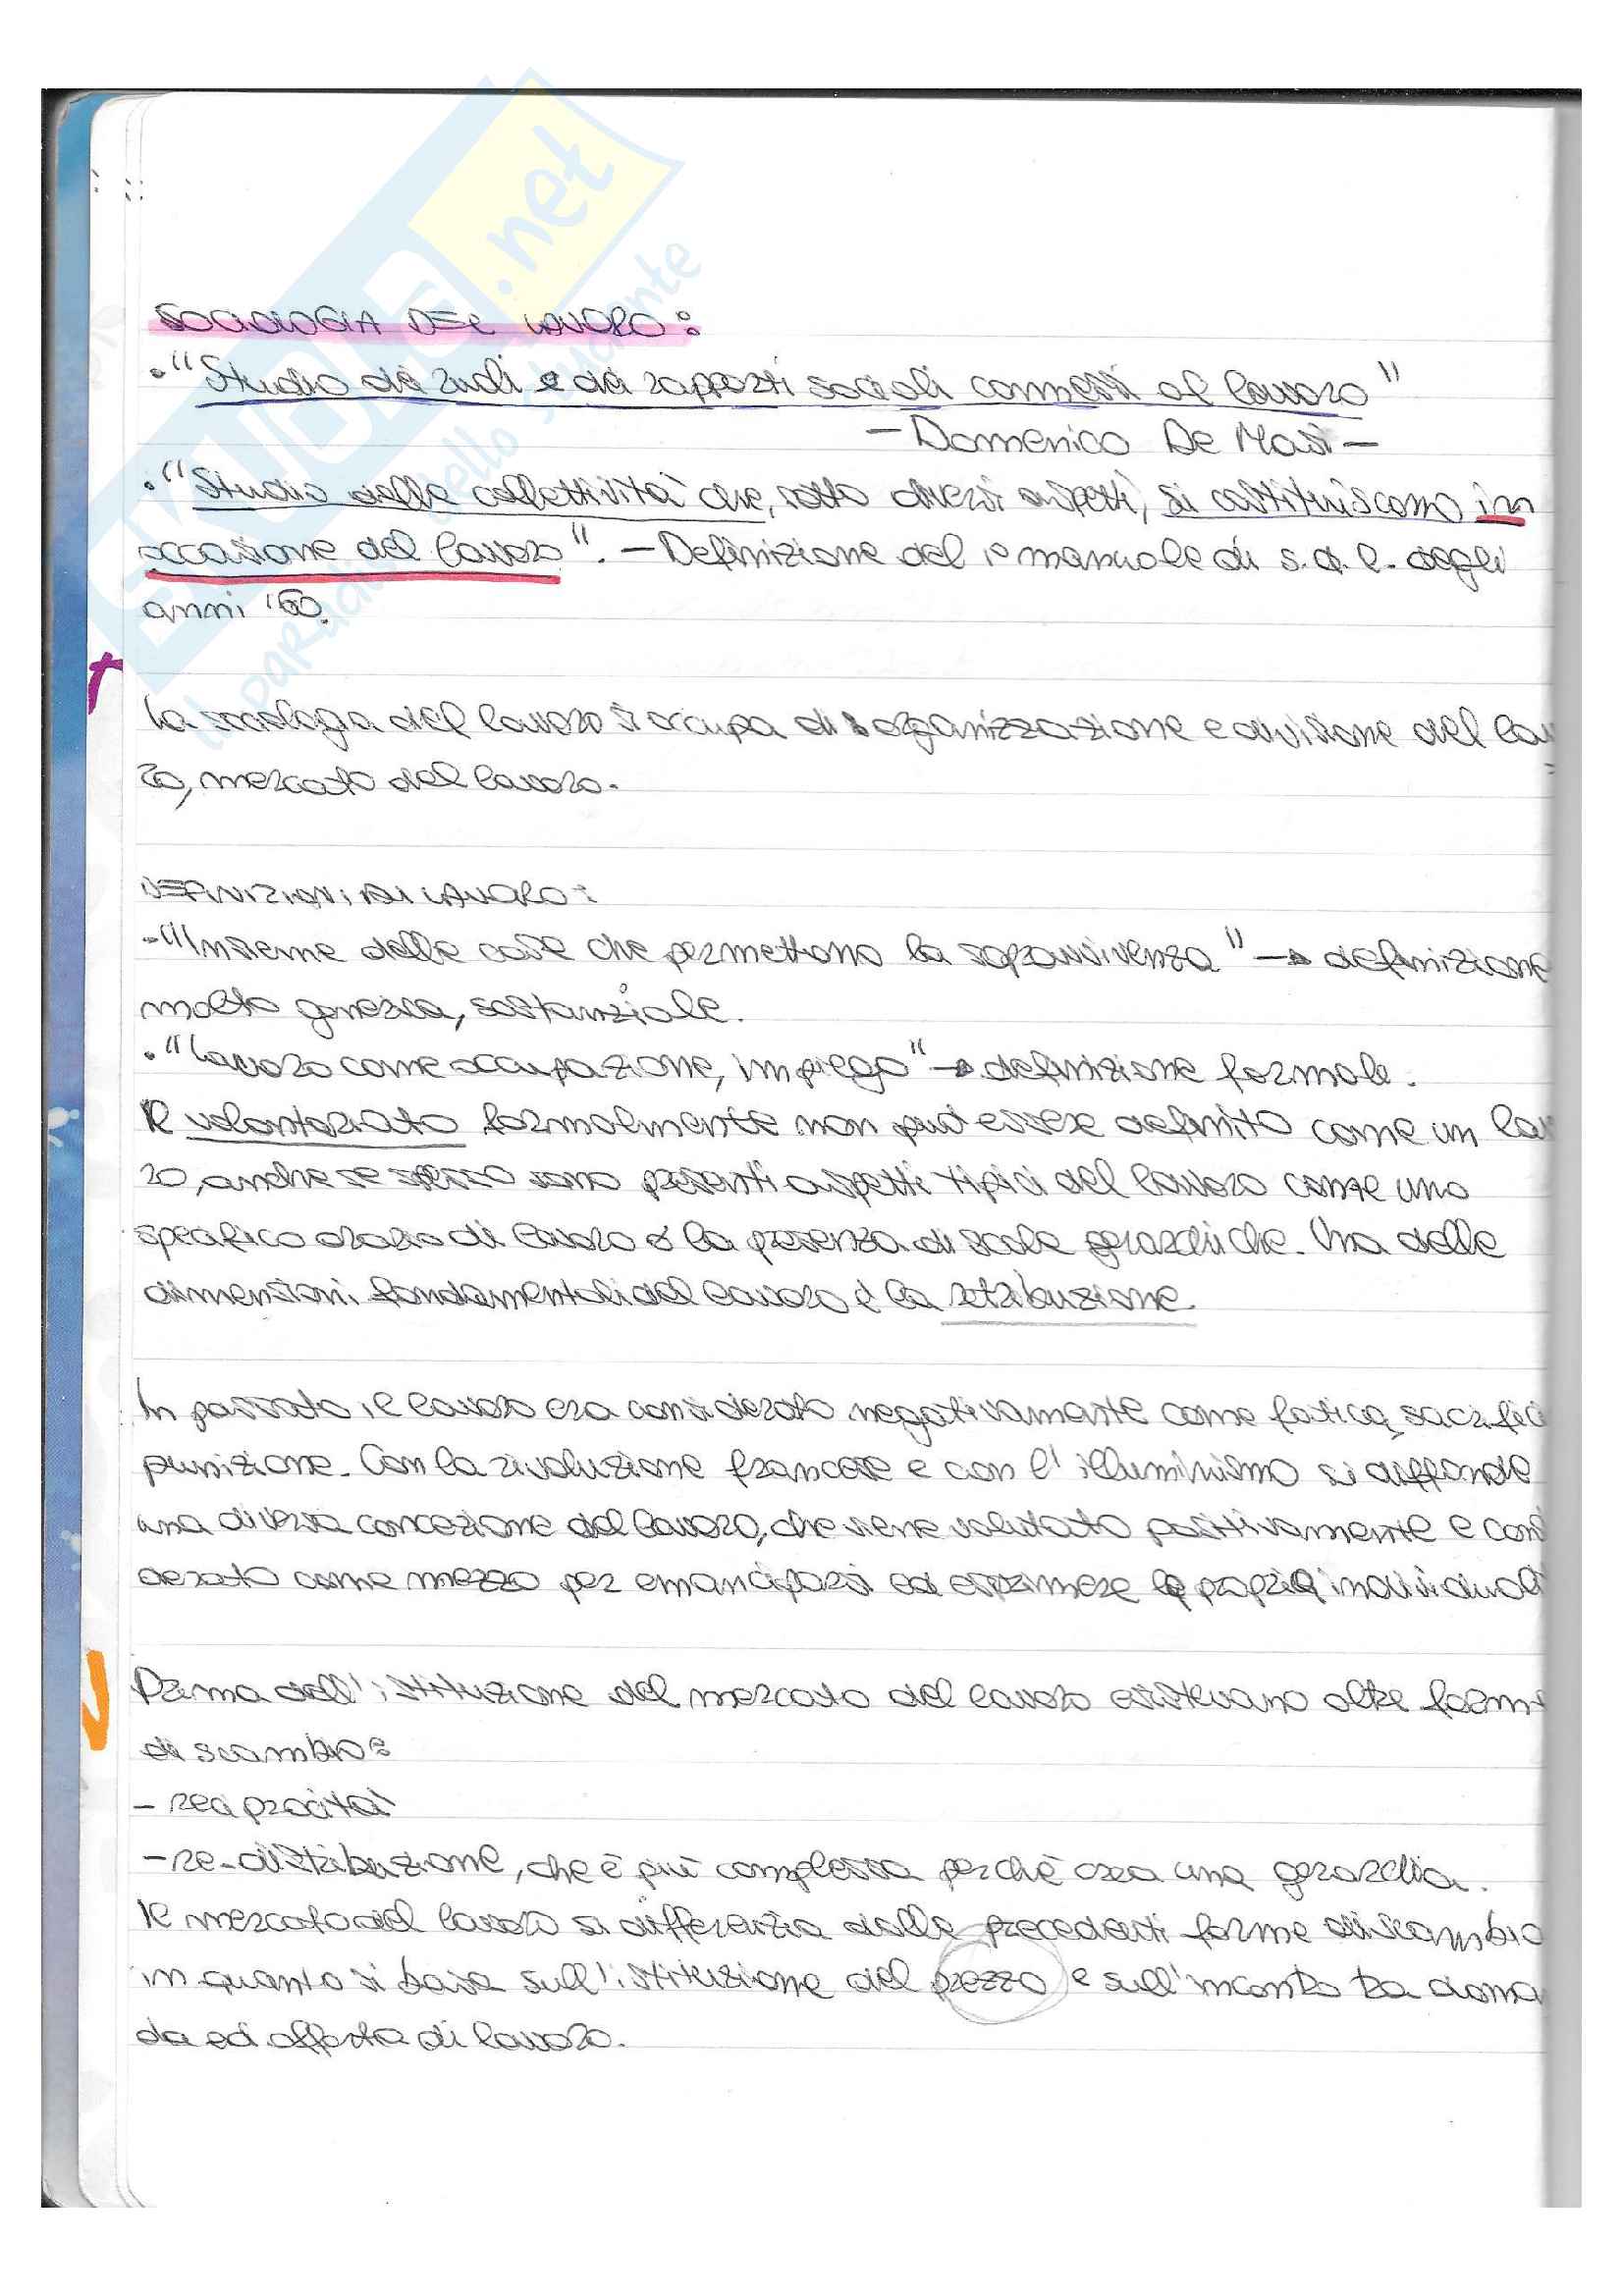 SKUOLA.net
il paradiso dello studente
SOCIOLOGIA DEL LAVORO:
•"Studio dei ruoli e dei rapporti sociali connessi al lavoro"
– Domenico De Masi –
•"Studio delle collettività che, sotto diversi aspetti, si costituiscono in
occasione del lavoro". – Definizione del 1° manuale di s.d.l. degli
anni '60.
La sociologia del lavoro si occupa di organizzazione e divisione del lav
ro, mercato del lavoro.
DEFINIZIONI DI LAVORO:
•"Insieme delle cose che permettono la sopravvivenza" → definizione
molto generica, sostanziale.
•"Lavoro come occupazione, impiego" → definizione formale.
Il volontariato formalmente non può essere definito come un lav
ro, anche se spesso sono presenti aspetti tipici del lavoro come uno
specifico orario di lavoro o la presenza di scale gerarchiche. Una delle
dimensioni fondamentali del lavoro è la retribuzione.
In passato il lavoro era considerato negativamente come fatica, sacrifici
punizione. Con la rivoluzione francese e con l'illuminismo si diffonde
una diversa concezione del lavoro, che viene valutato positivamente e consi
derato come mezzo per emanciparsi ed esprimere la propria individuali
Prima dell'istituzione del mercato del lavoro esistevano altre forme
di scambio:
– reciprocità
– re-distribuzione, che è più complessa perchè crea una gerarchia.
Il mercato del lavoro si differenzia dalle precedenti forme di scambio
in quanto si basa sull'istituzione del prezzo e sull'incontro tra doman
da ed offerta di lavoro.